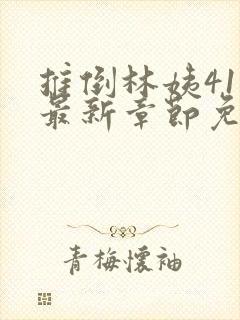 推倒林姨41
最新章节免
青梅懷袖